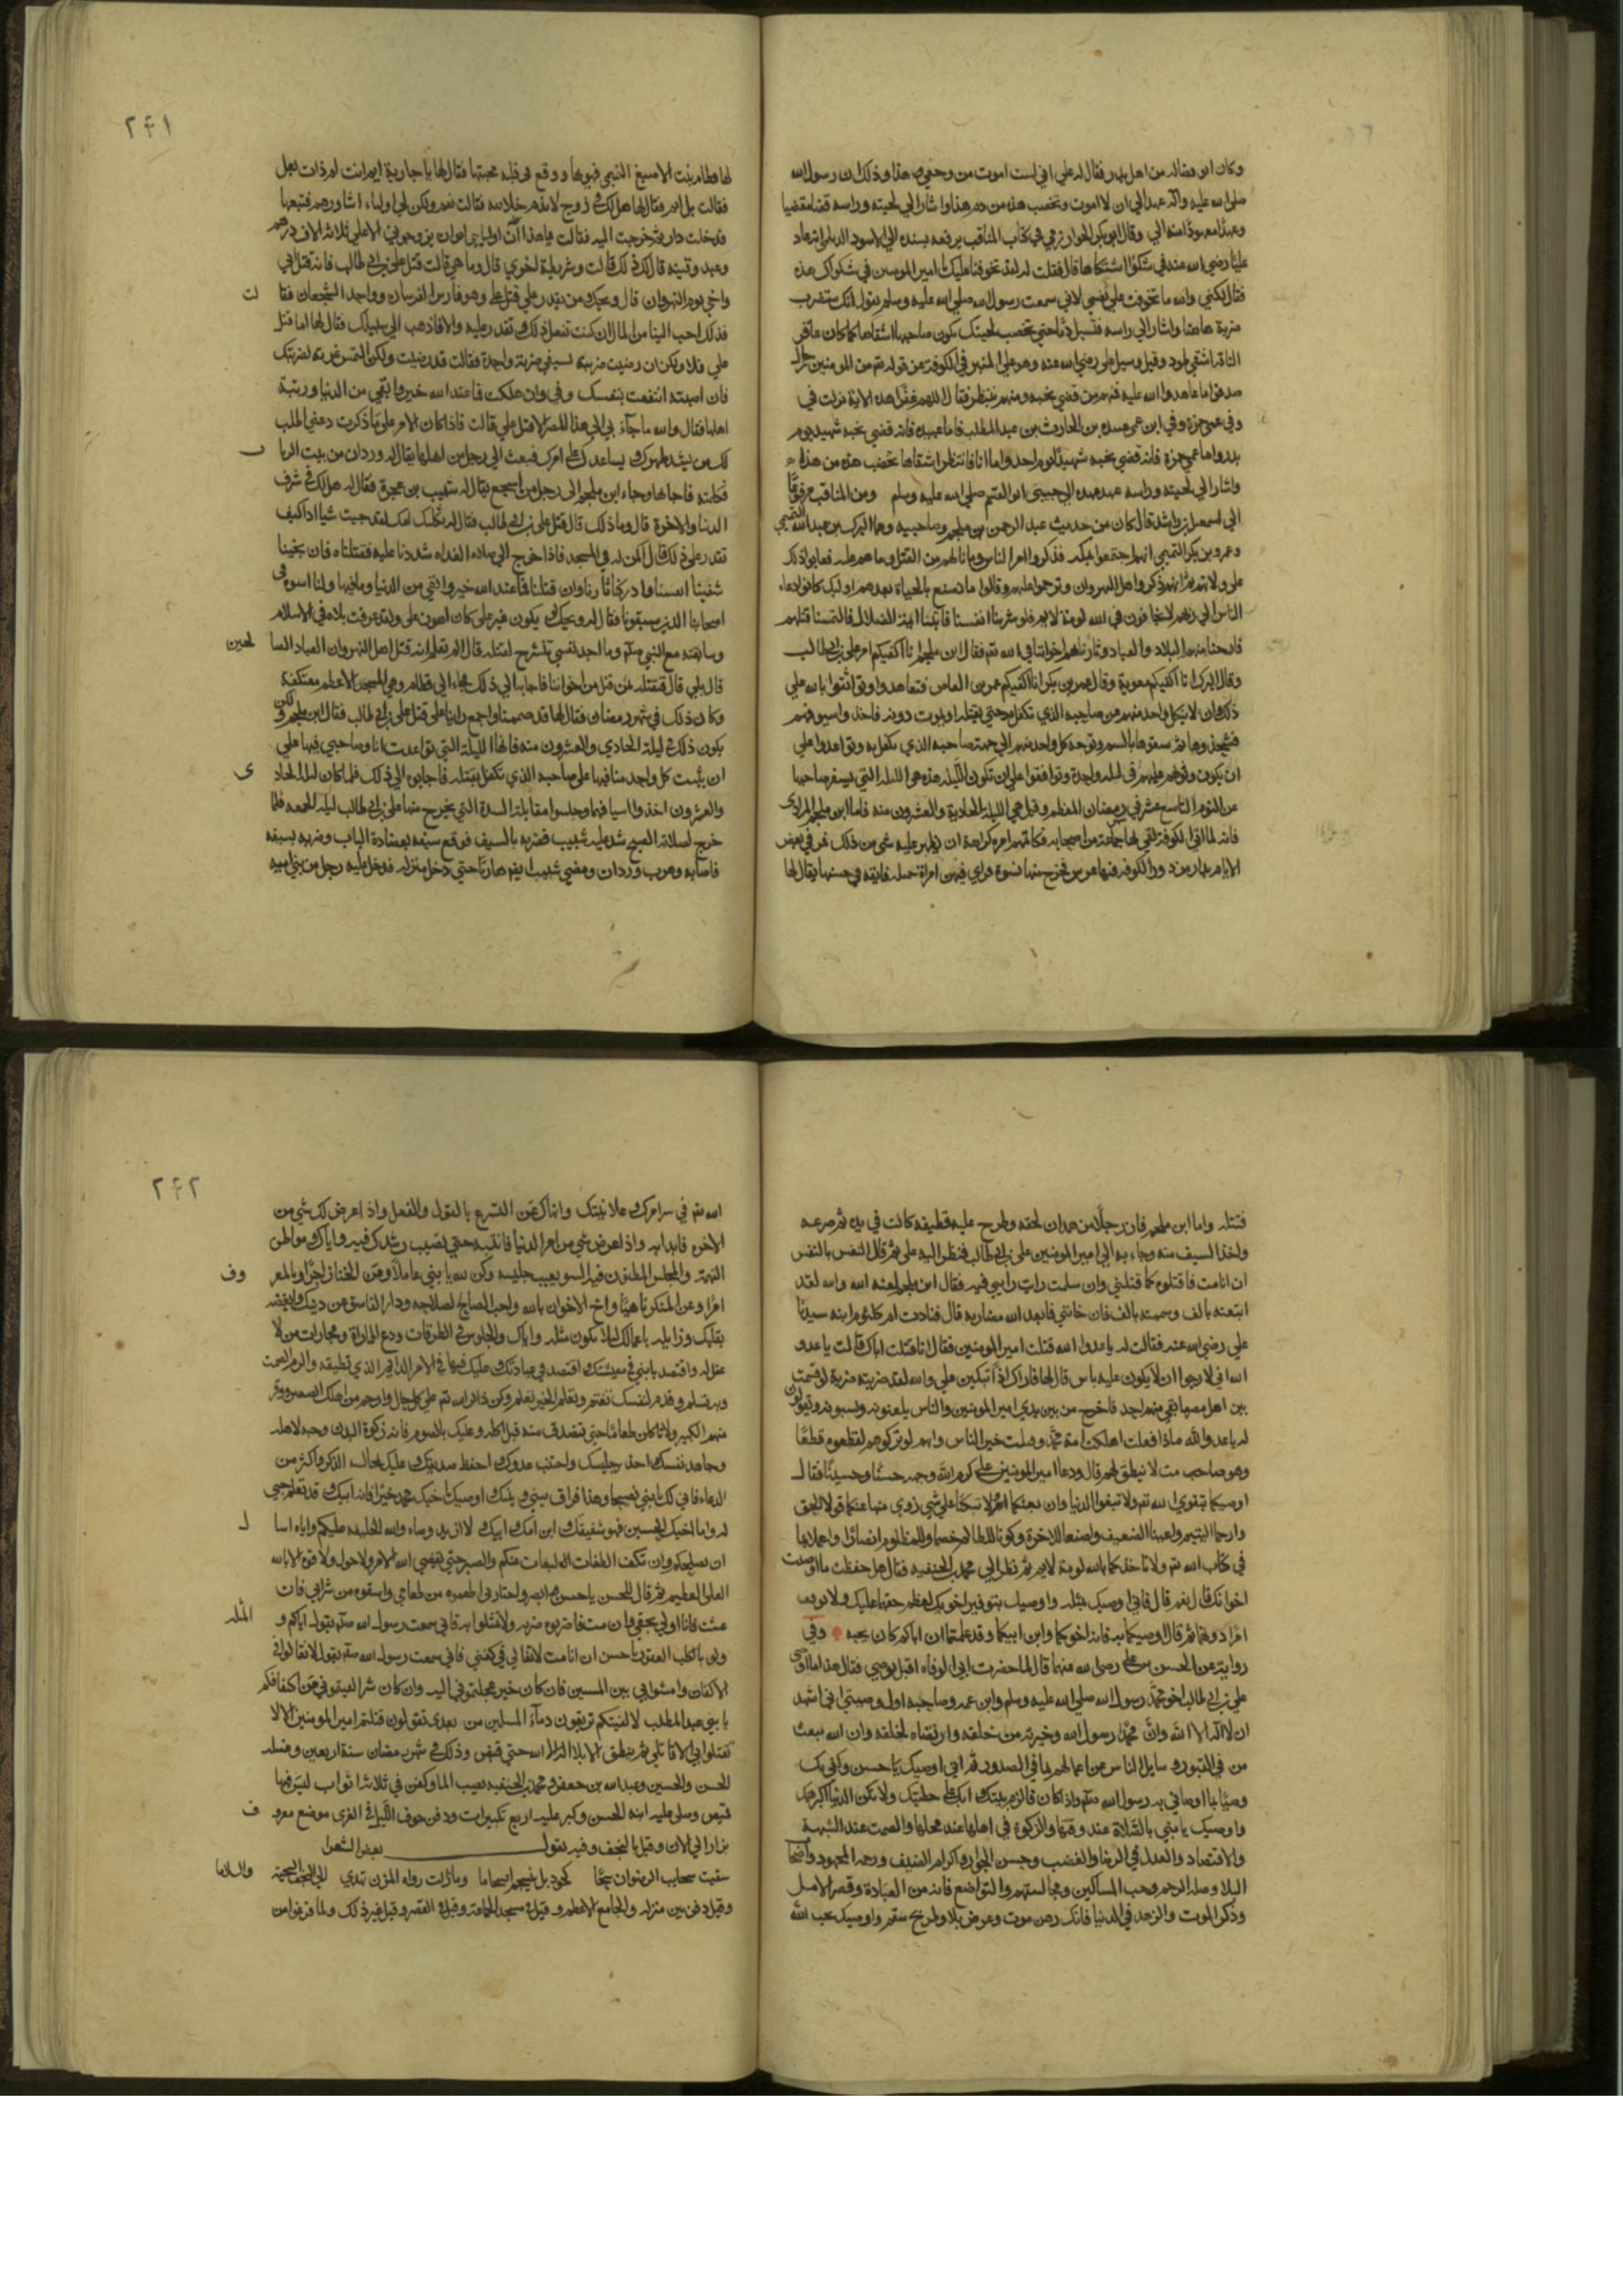 وكان ابو فضاله من اهل بدر فقال له علي اني لست اموت من وجعي هذا وذلك ان رسول الله
صلى الله عليه واله عهد الي ان لا اموت وتخضب هذه من دم هذا واشار الي لحيته وراسه قضا مقضيا
وعهدا معهودا منه الي وقال ابو بكر الخوارزمي في كتاب المناقب يرفعه بسنده الي الاسود الديلي انه عاد
عليا رضي الله عنه في شكوا اشتكاها قال فقلت له لقد تخوفنا عليك يا امير المومنين في شكواك هذه
فقال لكني والله ما تخوفت على نفسي لاني سمعت رسول الله صلى الله عليه وسلم يقول انك ستضرب
ضربة هاهنا واشار الي راسه فتسيل دما حتي تخضب لحيتك يكون صاحبها اشقاها كما كان عاقر
الناقة اشقي ثمود وقيل وسيل علي رضي الله عنه وهو علي المنبر في الكوفة عن قوله تم من المومنين رجال
صدقوا ما عاهدوا الله عليه فمنهم من قضي نحبه ومنهم من ينتظر فقال اللهم غفرا هذه الاية نزلت في
وفي عمي حمزة وفي ابن عمي عبيده بن الحارث بن عبد المطلب فاما عبيده فانه قضي نحبه شهيد يوم
بدر واما عمي حمزة فانه قضي نحبه شهيدا يوم احد واما انا فانتظر اشقاها تخضب هذه من هذه
واشار الي لحيته وراسه عهد عهده الي حبيبي ابو القسم صلى الله عليه وسلم ومن المناقب مرفوعا
الي اسمعيل بن راشد قال كان من حديث عبد الرحمن بن ملجم وصاحبيه وهما البرك بن عبد الله التميمي
وعمرو بن بكر التميمي انهم اجتمعوا بمكه فذكروا امر الناس وما نالهم من القتل وما هم عليه فعابوا ذلك
على ولاتهم ثم انهم ذكروا اهل النهروان وترحموا عليهم وقالوا ما نصنع بالحياة بعدهم اوليك كانوا دعاه
الناس الي ربهم لا يخافون في الله لومة لايم فلو شرينا انفسنا فاتينا ايمة الضلال فالتمسنا قتلهم
فارحنا منهم البلاد والعباد وثارنا بهم اخواننا في الله تم فقال ابن ملجم انا اكفيكم امر علي بن ابي طالب
وقال البرك انا اكفيكم معوية وقال عمر بن بكر انا اكفيكم عمر بن العاص فتعاهدوا وتواثقوا بالله علي
ذلك ان لا ينكل واحد منهم عن صاحبه الذي تكفل به حتي يقتله او يموت دونه فاخذوا اسيوفهم
فشحذوها ثم سقوها بالسم وتوجه كل واحد منهم الي جهة صاحبه الذي تكفل به وتواعدوا علي
ان يكون وثوبهم عليهم في ليله واحدة وتوافقوا علي ان تكون الليله هذه هي الليله التي يسفر صاحبها
عن اليوم التاسع عشر في رمضان المعظم وقيل هي الليلة الحادية والعشرون منه فاما ابن ملجم المرادي
فانه لما اتي الكوفة لقي بها جماعة من اصحابه فكاتمهم امره كراهة ان يظهر عليه شي من ذلك فمر في بعض
الايام بدار من دور الكوفة فيها عرس فخرج منها نسوة فراي فيهن امراة جميله فايقة في حسنها يقال لها
٢٤١
لها قطام بنت الاصبغ التميمي فهواها ووقع في قلبه محبتها فقال لها يا جارية ايم انت ام ذات بعل
فقالت بل ايم فقال لها هل لك في زوج لا تذم خلايقه فقالت نعم ولكن لي اولياء اشاورهم فتبعها
فدخلت دار ثم خرجت اليه فقالت يا هذا ان اوليايي ابوا ان يزوجوني الا علي ثلاثة الاف درهم
وعبد وقينه قال لك ذلك قالت وشريطة اخري قال وما هي قالت قتل علي بن ابي طالب فانه قتل ابي
واخي يوم النهروان قال ويحك ومن يقدر علي قتل علي وهو فارس الفرسان وواحد الشجعان فقا لت
فذلك احب الينا من المال ان كنت تفعل ذلك وتقدر عليه والا فاذهب الي سبيلك فقال لها اما قتل
علي فلا ولكن ان رضيت ضربته بسيفي ضربة واحدة فقالت قد رضيت ولكن التمس غرته لضربتك
فان اصبته انتفعت بنفسك وفي وان هلكت فما عند الله خير وابقي من الدنيا وزينة
اهلها فقال والله ما جاء بي الي هذا المصر الا قتل علي قالت فاذا كان الامر علي ما ذكرت دعني اطلب
لك من يشد ظهرك ويساعدك علي امرك فبعث الي رجل من اهلها يقال له وردان من تيم الربا ب
فكلمته فاجابها وجاء ابن ملجم الى رجل من اشجع يقال له شبيب بن عجرة فقال له هل لك في شرف
الدنيا والاخرة قال وما ذلك قال قتل علي بن ابي طالب فقال له ثكلتك امك لقد جيت شيا ادا كيف
تقدر علي ذلك قال اكمن له في المسجد فاذا خرج الي صلاه الغداه شددنا عليه فقتلناه فان نجينا
شفينا انفسنا وادركنا ثارنا وان قتلنا فما عند الله خير وابقي من الدنيا وما فيها ولنا اسوة في
اصحابنا الذين سبقونا فقال له ويحك لو يكون غير علي كان اهون علي ولقد عرفت بلاه في الاسلام
وسابقته مع النبي صلم وما اجد نفسي تنشرح لقتله قال الم تعلم انه قتل اهل النهروان العباد الصا لحين
قال بلي قال فنقتله بمن قتل من اخواننا فاجابه الي ذلك فجاء الي قطام وهي في المسجد الاعظم معتكفة
وكان ذلك في شهر رمضان فقال لها قد صممنا واجمع راينا على قتل علي بن ابي طالب فقال ابن ملجم ولكن
يكون ذلك في ليلة الحادي والعشرون منه فانها الليلة التي تواعدت انا وصاحبي فيها علي
ان يثبت كل واحد منا فيها علي صاحبه الذي تكفل بقتله فاجابوه الي ذلك فلما كان ليلة الحاد ي
والعشرون اخذوا اسيافهم وجلسوا مقابلة السدة التي يخرج منها علي بن ابي طالب ليله الجمعه فلما
خرج لصلاة الصبح شد عليه شبيب فضربه بالسيف فوقع سيفه بعضادة الباب وضربه بسيفه
فاصابه وهرب وردان ومضي شبيب ايضا هاربا حتي دخل منزله فدخل عليه رجل من بني ابيه
فقتله واما ابن ملجم فان رجلا من همدان لحقه وطرح عليه قطيفه كانت في يده ثم صرعه
واخذ السيف منه وجاء به الي امير المومنين علي بن ابي طالب فنظر اليه علي ثم قال النفس بالنفس
ان انا مت فاقتلوه كما قتلني وان سلمت رايت رايي فيه فقال ابن ملجم لعنه الله والله لقد
ابتعته بالف وسممته بالف فان خانني فابعد الله مضاربه قال فنادت ام كلثوم ابنة سيدنا
علي رضي الله عنه فقالت له يا عدوا الله قتلت امير المومنين فقال انا قتلت اباك قالت يا عدو
الله اني لارجوا ان لا يكون عليه باس قال لها فاراك اذا تبكين علي والله لقد ضربته ضربة لو قسمت
بين اهل مصر ما بقي منهم احد فاخرج من بين يدي امير المومنين والناس يلعنونه ويسبونه ويقولون
له يا عدو الله ماذا فعلت اهلكت امة محمد وقتلت خير الناس وانهم لو تركوهم لقطعوه قطعا
وهو صاحب مت لا ينطق لهم قال ودعا امير المومنين علي كرم الله وجهه حسنا وحسينا فقال
اوصيكما بتقوي الله تم ولا تبغوا الدنيا وان بغتكما ولا تبكيا علي شي زوي منها عنكما قولا الحق
وارحما اليتيم واعينا الضعيف واصنعا للاخرة وكونا للظالم خصما وللمظلوم انصارا واعملا بما
في كتاب الله تم ولا تاخذكما بالله لومة لايم ثم نظر الي محمد بن الحنفيه فقال هل حفظت ما اوصيت
اخوانك قال نعم قال فاني اوصيك بمثله واوصيك بتوقير اخويك لعظم حقهما عليك ولا توثق
امرا دونهما ثم قال اوصيكما به فانه اخوكما وابن ابيكما وقد علمتما ان اباكم كان يحبه وفي
رواية عن الحسن بن علي رضي الله عنهما قال لما حضرت ابي الوفاه اقبل يوصي فقال هذا ما اوصي
علي بن ابي طالب اخو محمد رسول الله صلى الله عليه وسلم وابن عمه وصاحبه اول وصيتي اني اشهد
ان لا اله الا الله وان محمدا رسول الله وخيرته من خلقه وارتضاه لخلقه وان الله يبعث
من في القبور و سايل الناس عن اعمالهم بما في الصدور ثم اني اوصيك يا حسن وكفي بك
وصيا بما اوصاني به رسول الله صلم واذا كان فالزم بيتك ابك علي خطيتك ولا تكن الدنيا اكبر همك
واوصيك يا بني بالصلاة عند وقتها والزكوة في اهلها عند محلها والصمت عند الشبهة
والاقتصاد والعدل في الرضا والغضب وحسن الجوار واكرام الضيف ورحمه المجهود واصحاب
البلا وصلة الرحم وحب المساكين ومجالستهم والتواضع فانه من العبادة وقصر الامل
وذكر الموت والزهد في الدنيا فانك رهن موت وعرض بلا وطريح سقم واوصيك بحب الله
٢٤٢
الله تم في سر امرك وعلانيتك وانهاك عن التسرع بالقول والفعل واذا عرض لك شي من
الاخرة فابدا به واذا عرض شي من امر الدنيا فانته حتي تصيب رشدك فيه واياك ومواطن
التهمة والمجلس المظنون فيه السو يعيب جليسه وكن لله يا بني عاملا وعن الخنا زاجرا وبالمعر وف
امرا وعن المنكر ناهيا واخ الاخوان بالله واحب الصالح لصلاحه ودار الفاسق عن دينك وابغضه
بقلبك وزايله باعمالك ليلا تكون مثله واياك والجلوس في الطرقات ودع المماراة ومجارات من لا
عقل له واقتصد يا بني في معيشتك واقتصد في عبادتك وعليك فيها في الامر الدايم الذي تطيقه والزم الصمت
وبه تسلم وقدم لنفسك تغتنم وتعلم الخير تعلم وكن ذاكر الله تم علي كل حال وارحم من اهلك الصغير ووقر
منهم الكبير ولا تاكلن طعاما حتي تتصدق منه قبل اكله وعليك بالصوم فانه زكوة البدن وجنة لاهله
وجاهد نفسك احذر جليسك واجتنب عدوك واحفظ صديقك وعليك بمجالس الذكر واكثر من
الدعاء فاني لم الك يا بني نصيحا وهذا فراق بيني وبينك واوصيك باخيك محمد خيرا فانه ابن ابيك وقد تعلم حبي
له واما اخيك الحسين فهو شقيقك وابن امك وابيك لا ازيد وصاه والله الخليفه عليكم واياه اسا ل
ان يصلحكم وان يكف الطغاة البغاة عنكم والصبر حتي يقضي الله الامر ولا حول ولا قوة الا بالله
العلي العظيم ثم قال للحسن يا حسن ابصروا ضاربي اطعموه من طعامي واسقوه من شرابي فان
عشت فانا اولي بحقي وان مت فاضربوه ضربه ولا تمثلوا به فاني سمعت رسول الله صلم يقول اياكم و المثله
ولو بالكلب العقور يا حسن ان انا مت لا تغالي في كفني فاني سمعت رسول الله صلم يقول لا تغالوا في
الاكفان وامشوا بي بين المشيين فان كان خير عجلتموني اليه وان كان شر القيتموني عن اكتافكم
يا بني عبد المطلب لا الفينكم تريقون دماء المسلمين من بعدي تقولون قتلتم امير المومنين الا لا
تقتلوا بي الا قاتلي ثم لم ينطق الا بلا اله الا الله حتي قبض وذلك في شهر رمضان سنة اربعين وغسله
الحسن والحسين وعبد الله بن جعفر ومحمد بن الحنفيه يصب الما وكفن في ثلاثة اثواب ليس فيها
قميص وصلى عليه ابنه الحسن وكبر عليه اربع تكبيرات ودفن جوف الليل في الغري موضع معرو ف
يزار الي الان وقيل بالنجف وفيه يقول بعض الشعرا
سقيت سحايب الرضوان سحا كجود يديك ينسجم انسجاما وما زالت رواه المزن تهدي الي النجف التحية والسلاما
وقيل دفن بين منزله والجامع الاعظم وقيل في مسجد الجماعة وقيل في القصر وقيل غير ذلك ولما فرغوا من